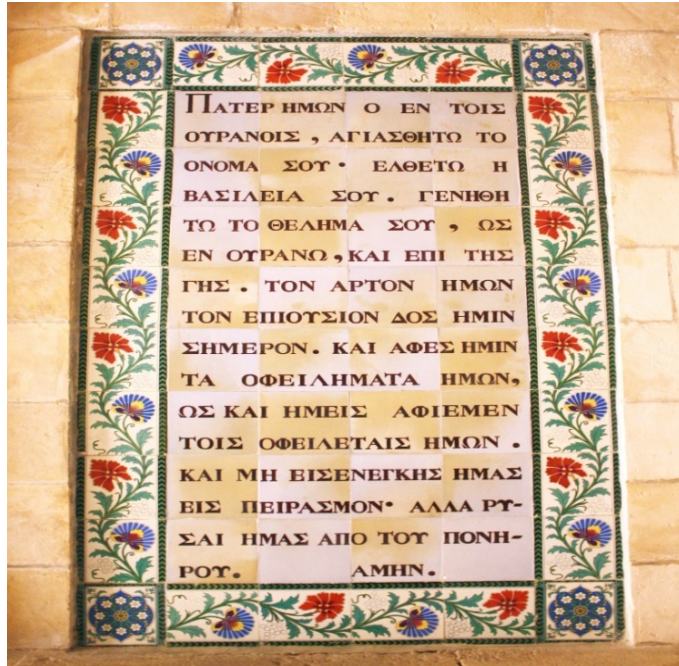 ΠΑΤΕΡ ΗΜΩΝ Ο ΕΝ ΤΟΙΣ
ΟΥΡΑΝΟΙΣ , ΑΓΙΑΣΘΗΤΩ ΤΟ
ΟΝΟΜΑ ΣΟΥ· ΕΛΘΕΤΩ Η
ΒΑΣΙΛΕΙΑ ΣΟΥ . ΓΕΝΗΘΗ
ΤΩ ΤΟ ΘΕΛΗΜΑ ΣΟΥ , ΩΣ
ΕΝ ΟΥΡΑΝΩ , ΚΑΙ ΕΠΙ ΤΗΣ
ΓΗΣ . ΤΟΝ ΑΡΤΟΝ ΗΜΩΝ
ΤΟΝ ΕΠΙΟΥΣΙΟΝ ΔΟΣ ΗΜΙΝ
ΣΗΜΕΡΟΝ. ΚΑΙ ΑΦΕΣ ΗΜΙΝ
ΤΑ ΟΦΕΙΛΗΜΑΤΑ ΗΜΩΝ,
ΩΣ ΚΑΙ ΗΜΕΙΣ ΑΦΙΕΜΕΝ
ΤΟΙΣ ΟΦΕΙΛΕΤΑΙΣ ΗΜΩΝ .
ΚΑΙ ΜΗ ΕΙΣΕΝΕΓΚΗΣ ΗΜΑΣ
ΕΙΣ ΠΕΙΡΑΣΜΟΝ· ΑΛΛΑ ΡΥ-
ΣΑΙ ΗΜΑΣ ΑΠΟ ΤΟΥ ΠΟΝΗ-
ΡΟΥ. ΑΜΗΝ.